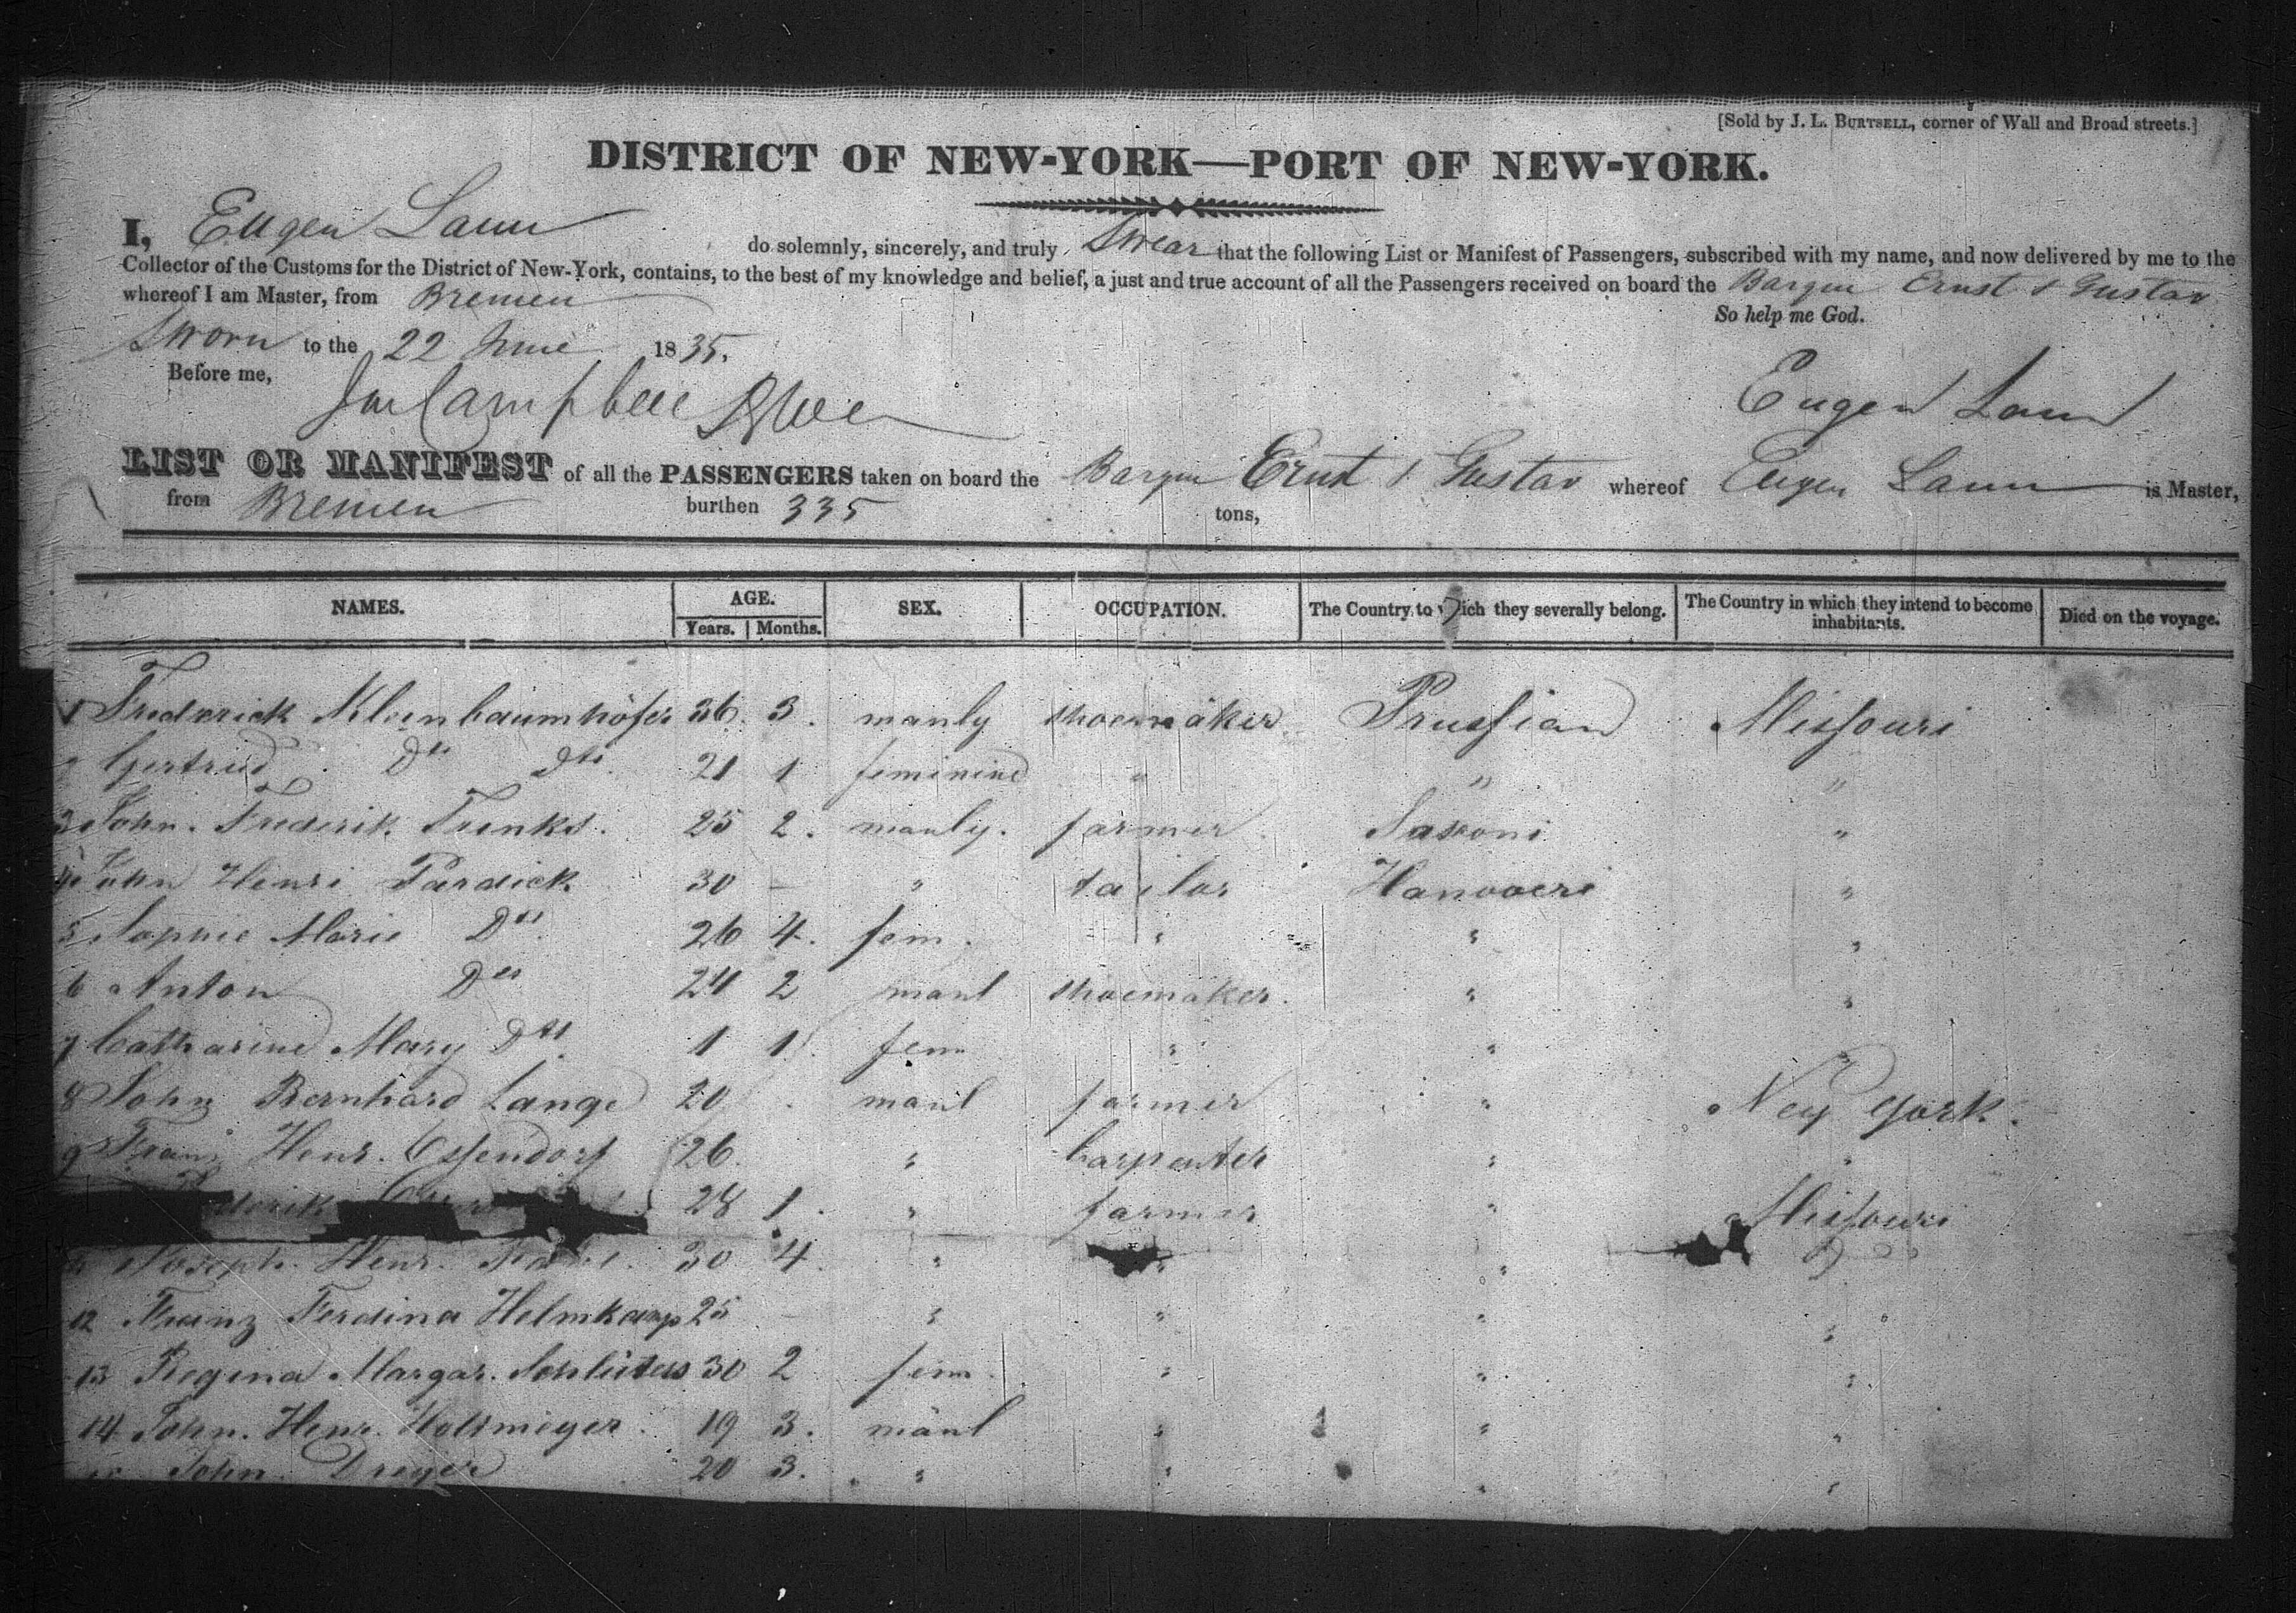 [Sold by J. L. BURTSELL, corner of Wall and Broad streets.]
DISTRICT OF NEW-YORK—PORT OF NEW-YORK.
I, Eugen Laun do solemnly, sincerely, and truly Swear that the following List or Manifest of Passengers, subscribed with my name, and now delivered by me to the
Collector of the Customs for the District of New-York, contains, to the best of my knowledge and belief, a just and true account of all the Passengers received on board the Barque Ernst & Gustav
whereof I am Master, from Bremen
So help me God.
Sworn to the 22 June 1835.
Before me,
Campbell
Eugen Laun
LIST OR MANIFEST of all the PASSENGERS taken on board the Barque Ernst & Gustav whereof Eugen Laun is Master,
from Bremen burthen 335 tons,
NAMES. AGE. Years. Months. SEX. OCCUPATION. The Country to which they severally belong. The Country in which they intend to become inhabitants. Died on the voyage.
1 Frederick Kleinbaumhöfer 36. 3. manly shoemaker Prussian Missouri
2 Gertrud Do Dto 21 1 feminine " " "
3 John. Frederik Trenks. 25 2. manly. farmer Saxoni "
4 John Henri Pardick 30 - " tailor Hanoveri "
5 Sophie Marie Dto 26 4. fem. " " "
6 Anton Do 24 2 manl shoemaker. " "
7 Catharine Mary Dto 1 1. fem " " "
8 John Bernhard Lange 20 . manl farmer " New York.
9 Franz Henr. Ossendorf 26. " Carpenter " "
derik 28 1. " farmer " Missouri
Joseph. Henr. 30 4. " " " Do
12 Franz Ferdina Helmkamp 25 - " " " "
13 Regina Margar. Schlüters 30 2 fem. " " "
14 John. Henr. Holtmeyer. 19 3. manl " " "
John Dreyer 20 3. " " " "